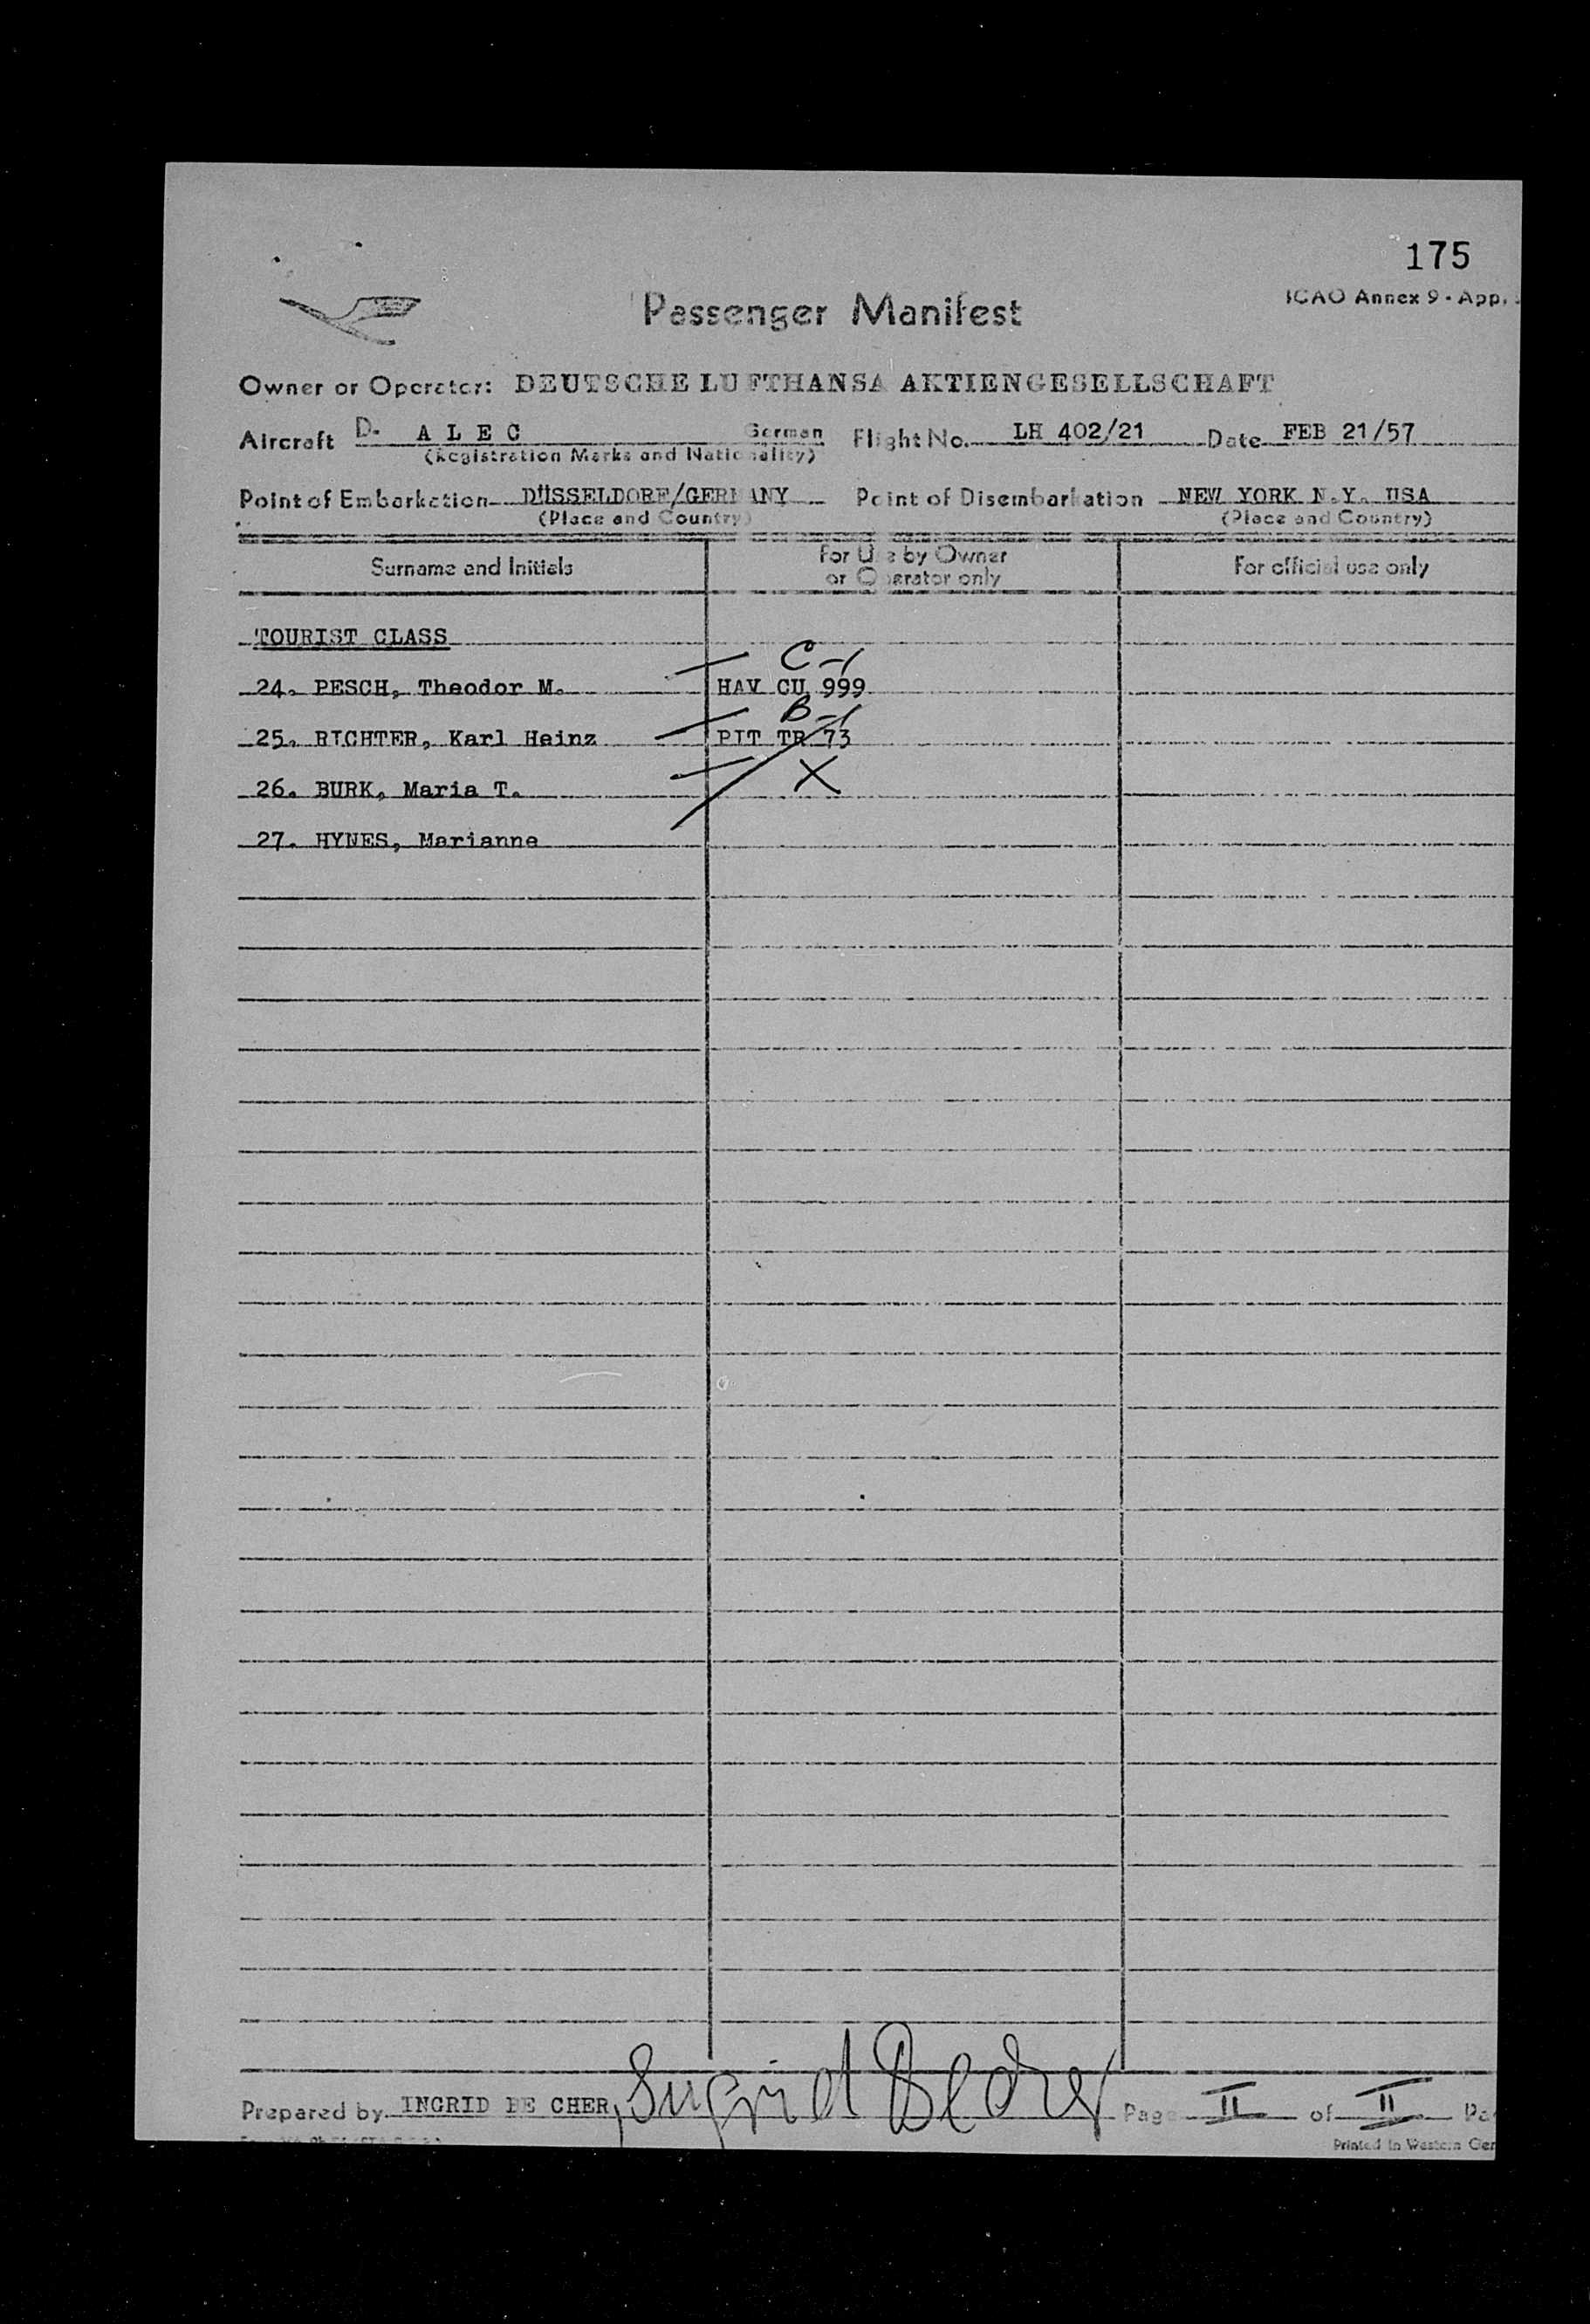 175
ICAO Annex 9 - App.
Passenger Manifest
Owner or Operator: DEUTSCHE LUFTHANSA AKTIENGESELLSCHAFT
Aircraft D- A L E C German Flight No. LH 402/21 Date FEB 21/57
(Registration Marks and Nationality)
Point of Embarkation DÜSSELDORF/GERMANY Point of Disembarkation NEW YORK N.Y. USA
(Place and Country) (Place and Country)
Surname and Initials For Use by Owner or Operator only For official use only
TOURIST CLASS
C-1
24. PESCH, Theodor M. HAV CU 999
B-1
25. RICHTER, Karl Heinz PIT TR 73
26. BURK, Maria T. X
27. HYNES, Marianne
Prepared by INGRID DE CHER, Page II of II
Printed in Western Ger